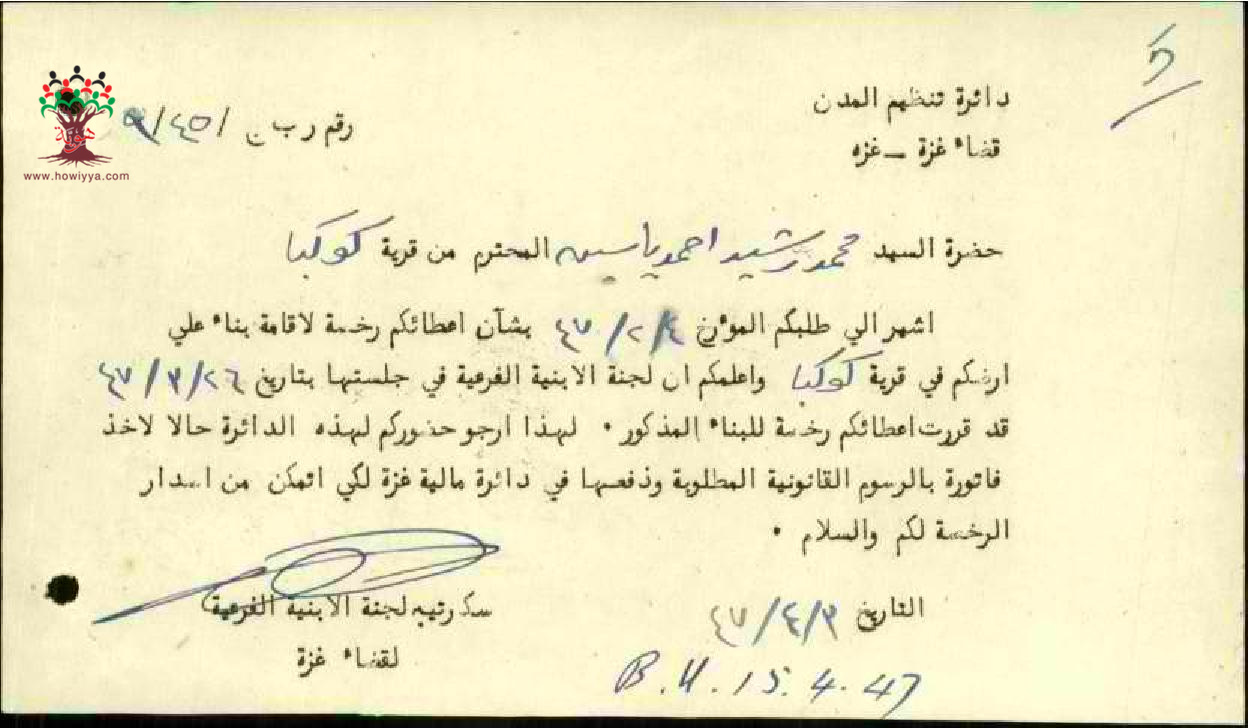 دائرة تنظيم المدن
قضاء غزة - غزه
رقم ر ب ج /٤٥/٩
حوية
www.howiyya.com
حضرة السيد محمد رشيد احمد ياسين المحترم من قرية كوكبا
اشير الي طلبكم المؤرخ ٤/٢/٤٧ بشآن اعطائكم رخصة لاقامة بناء علي
ارضكم في قرية كوكبا واعلمكم ان لجنة الابنية الفرعية في جلستها بتاريخ ٢٦/٣/٤٧
قد قررت اعطائكم رخصة للبناء المذكور . لهذا ارجو حضوركم لهذه الدائرة حالا لاخذ
فاتورة بالرسوم القانونية المطلوبة ودفعها في دائرة مالية غزة لكي اتمكن من اصدار
الرخصة لكم والسلام .
سكرتيبه لجنة الابنية الفرعية
لقضاء غزة
التاريخ ٣/٤/٤٧
B.U. 15.4.47